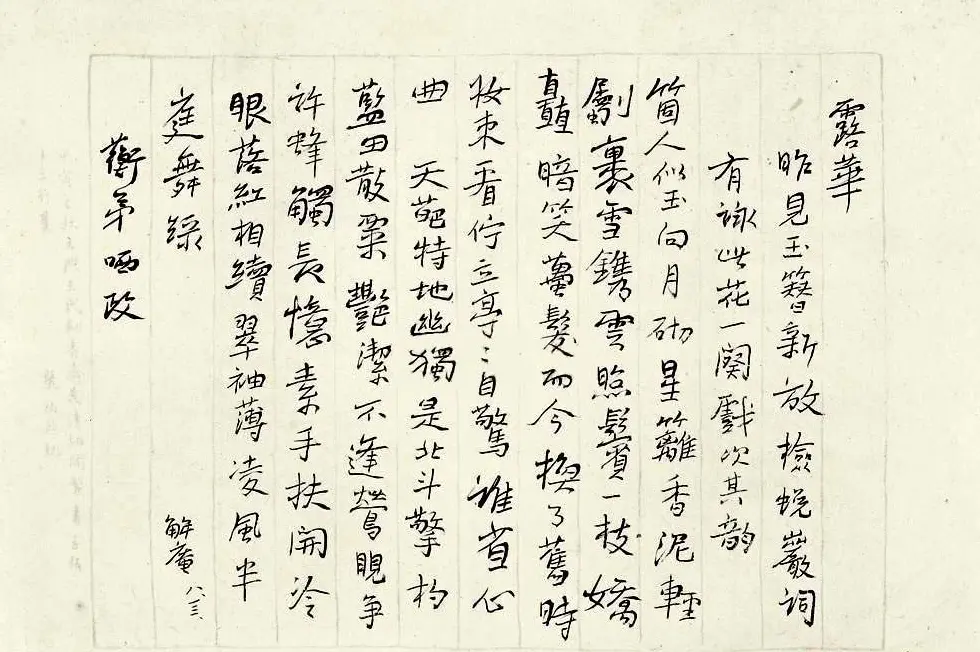 露華
昨見玉簪新放檢蛻巖詞
有詠此花一闋戲次其韵
箇人似玉向月砌星籬香泥輕
劚裏雪鐫雲照鬢一枝嬌
矗暗笑薑髮而今換了舊時
妝束看佇立亭亭自驚誰省心
曲 天葩特地幽獨是北斗擎杓
藍田散粟艷潔不逢鶯覷爭
許蜂觸長憶素手扶開冷
眼落紅相續翠袖薄凌風半
庭舞綠
蘅弟哂政
解庵 八三